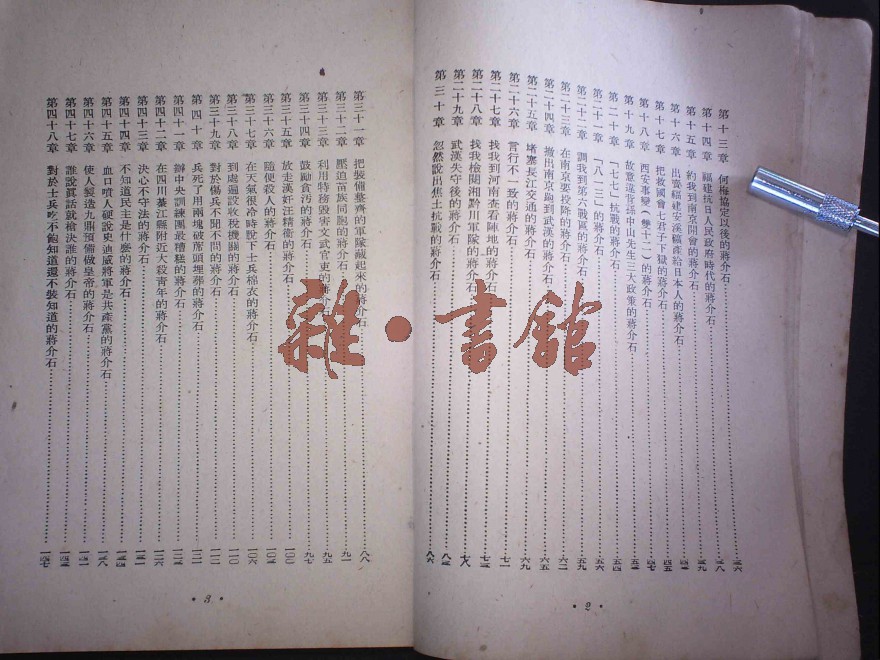 第十三章 何梅協定以後的蔣介石 三六
第十四章 福建抗日人民政府時代的蔣介石 三八
第十五章 約我到南京開會的蔣介石 三九
第十六章 出賣福建安溪礦產給日本人的蔣介石 四二
第十七章 把救國會七君子下獄的蔣介石 四五
第十八章 西安事變（雙十二）的蔣介石 四七
第十九章 故意違背孫中山先生三大政策的蔣介石 五二
第二十章 「七七」抗戰的蔣介石 五四
第二十一章 「八一三」的蔣介石 五六
第二十二章 調我到第六戰區的蔣介石 五九
第二十三章 在南京要投降的蔣介石 六二
第二十四章 撤出南京跑到武漢的蔣介石 六五
第二十五章 堵塞長江交通的蔣介石 六九
第二十六章 言行不一致的蔣介石 七一
第二十七章 找我到河南查看陣地的蔣介石 七三
第二十八章 找我檢閱湘黔川軍隊的蔣介石 七八
第二十九章 武漢失守後的蔣介石 八三
第三十章 忽然說出焦土抗戰的蔣介石 八六
·2·
第三十一章 把裝備整齊的軍隊藏起來的蔣介石 八八
第三十二章 壓迫苗族同胞的蔣介石 九一
第三十三章 利用特務毀害文武官吏的蔣介石 九五
第三十四章 鼓勵貪汚的蔣介石 九七
第三十五章 放走漢奸汪精衛的蔣介石 一〇〇
第三十六章 隨便殺人的蔣介石 一〇三
第三十七章 在天氣很冷時脫下士兵棉衣的蔣介石 一〇六
第三十八章 到處遍設收稅機關的蔣介石 一一〇
第三十九章 對於傷兵不聞不問的蔣介石 一一二
第四十章 兵死了用兩塊破蓆頭埋葬的蔣介石 一二一
第四十一章 辦中央訓練團最糟糕的蔣介石 一二三
第四十二章 在四川綦江縣附近大殺青年的蔣介石 一二六
第四十三章 決心不守法的蔣介石 一三一
第四十四章 不知道民主是什麼的蔣介石 一三四
第四十五章 血口噴人硬說史迪威將軍是共產黨的蔣介石 一三八
第四十六章 使人製造九鼎預備做皇帝的蔣介石 一四一
第四十七章 誰說眞話就槍決誰的蔣介石 一四三
第四十八章 對於士兵吃不飽知道還不裝知道的蔣介石 一四七
·3·
雜·書館